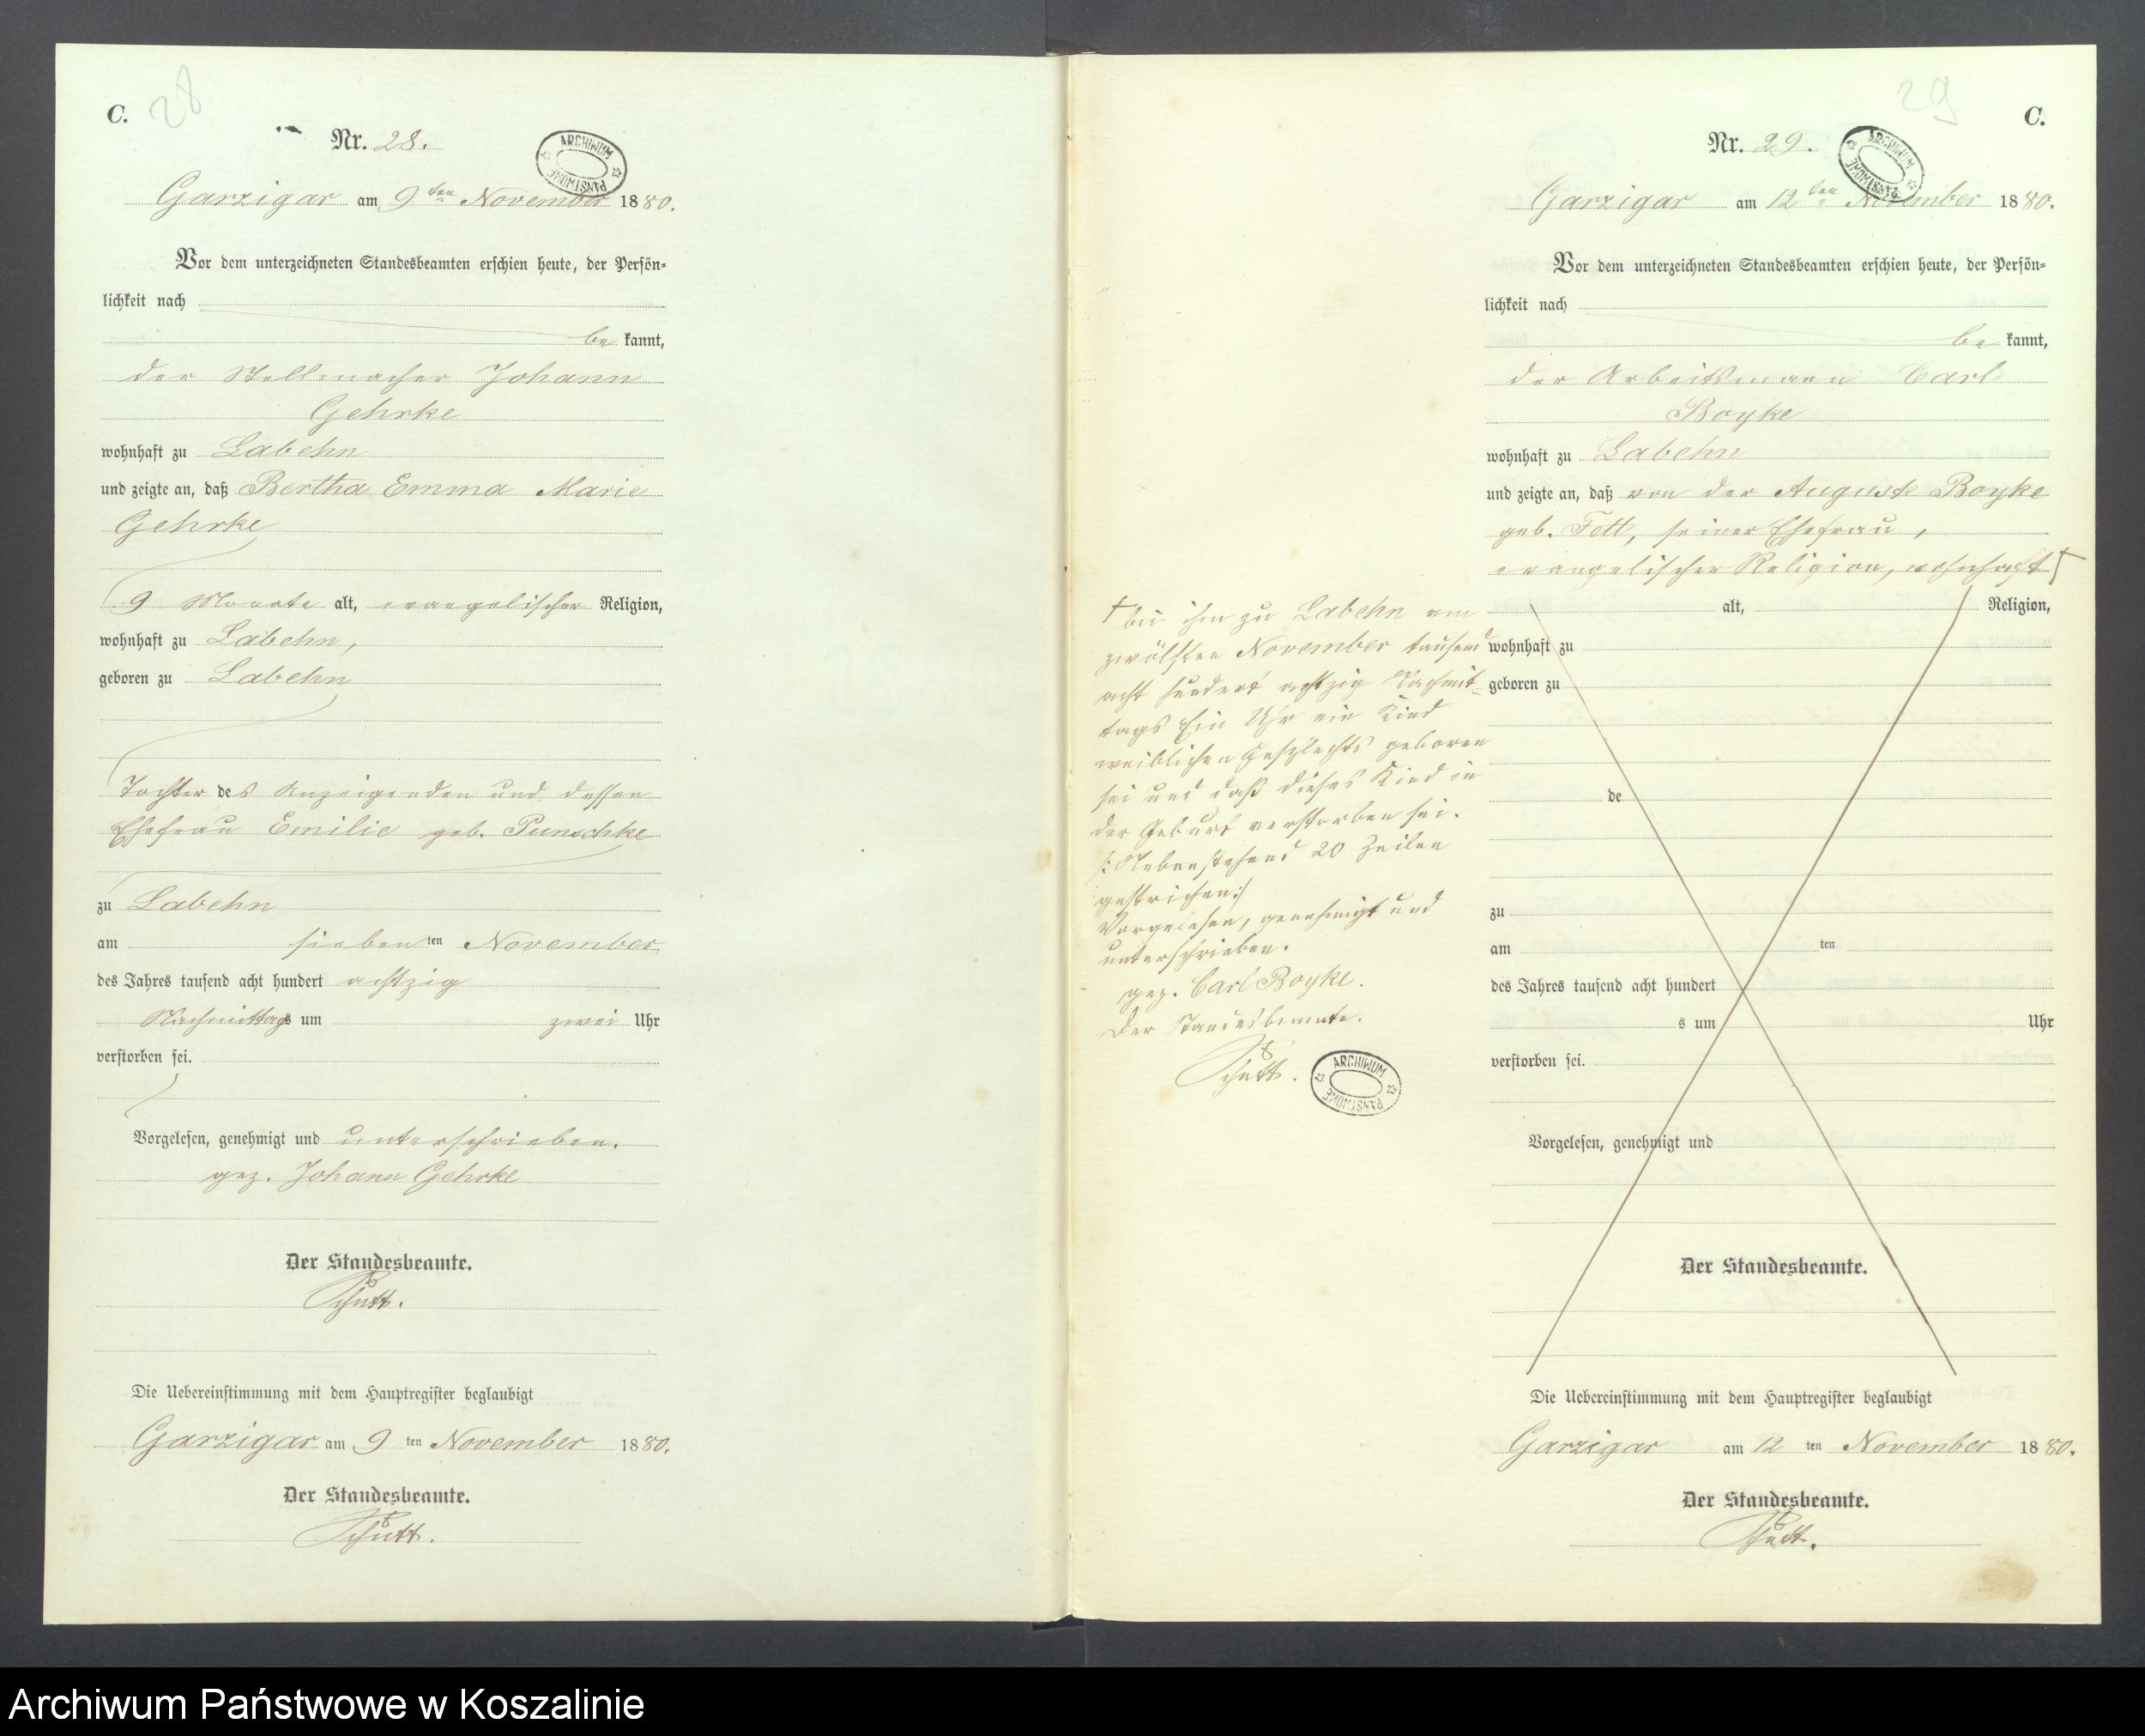 C.
28
Nr. 28.
ARCHIWUM PAŃSTWOWE
Garzigar am 9ten November 1880.
Vor dem unterzeichneten Standesbeamten erschien heute, der Persön-
lichkeit nach
be kannt,
der Stellmacher Johann
Gehrke
wohnhaft zu Labehn
und zeigte an, daß Bertha Emma Marie
Gehrke
9 Monate alt, evangelischer Religion,
wohnhaft zu Labehn,
geboren zu Labehn
Tochter des Anzeigenden und dessen
Ehefrau Emilie geb. Punschke
zu Labehn
am siebenten November
des Jahres tausend acht hundert achtzig
Nachmittags um zwei Uhr
verstorben sei.
Vorgelesen, genehmigt und unterschrieben.
gez. Johann Gehrke
Der Standesbeamte.
Schütt.
Die Uebereinstimmung mit dem Hauptregister beglaubigt
Garzigar am 9 ten November 1880.
Der Standesbeamte.
Schütt.
29
C.
Nr. 29.
ARCHIWUM PAŃSTWOWE
Garzigar am 12ten November 1880.
Vor dem unterzeichneten Standesbeamten erschien heute, der Persön-
lichkeit nach
be kannt,
der Arbeitsmann Carl
Boyke
wohnhaft zu Labehn
und zeigte an, daß von der Auguste Boyke
geb. Fett, seiner Ehefrau,
evangelischer Religion, wohnhaft
bei ihm zu Labehn am
zwölften November tausend
acht hundert achtzig Nachmit-
tags Ein Uhr ein Kind
weiblichen Geschlechts geboren
sei und daß dieses Kind in
der Geburt verstorben sei.
/: Nebenstehend 20 Zeilen
gestrichen :/
Vorgelesen, genehmigt und
unterschrieben.
gez. Carl Boyke.
Der Standesbeamte.
Schütt.
ARCHIWUM PAŃSTWOWE
alt, Religion,
wohnhaft zu
geboren zu
de
zu
am ten
des Jahres tausend acht hundert
s um Uhr
verstorben sei.
Vorgelesen, genehmigt und
Der Standesbeamte.
Die Uebereinstimmung mit dem Hauptregister beglaubigt
Garzigar am 12 ten November 1880.
Der Standesbeamte.
Schütt.
Archiwum Państwowe w Koszalinie